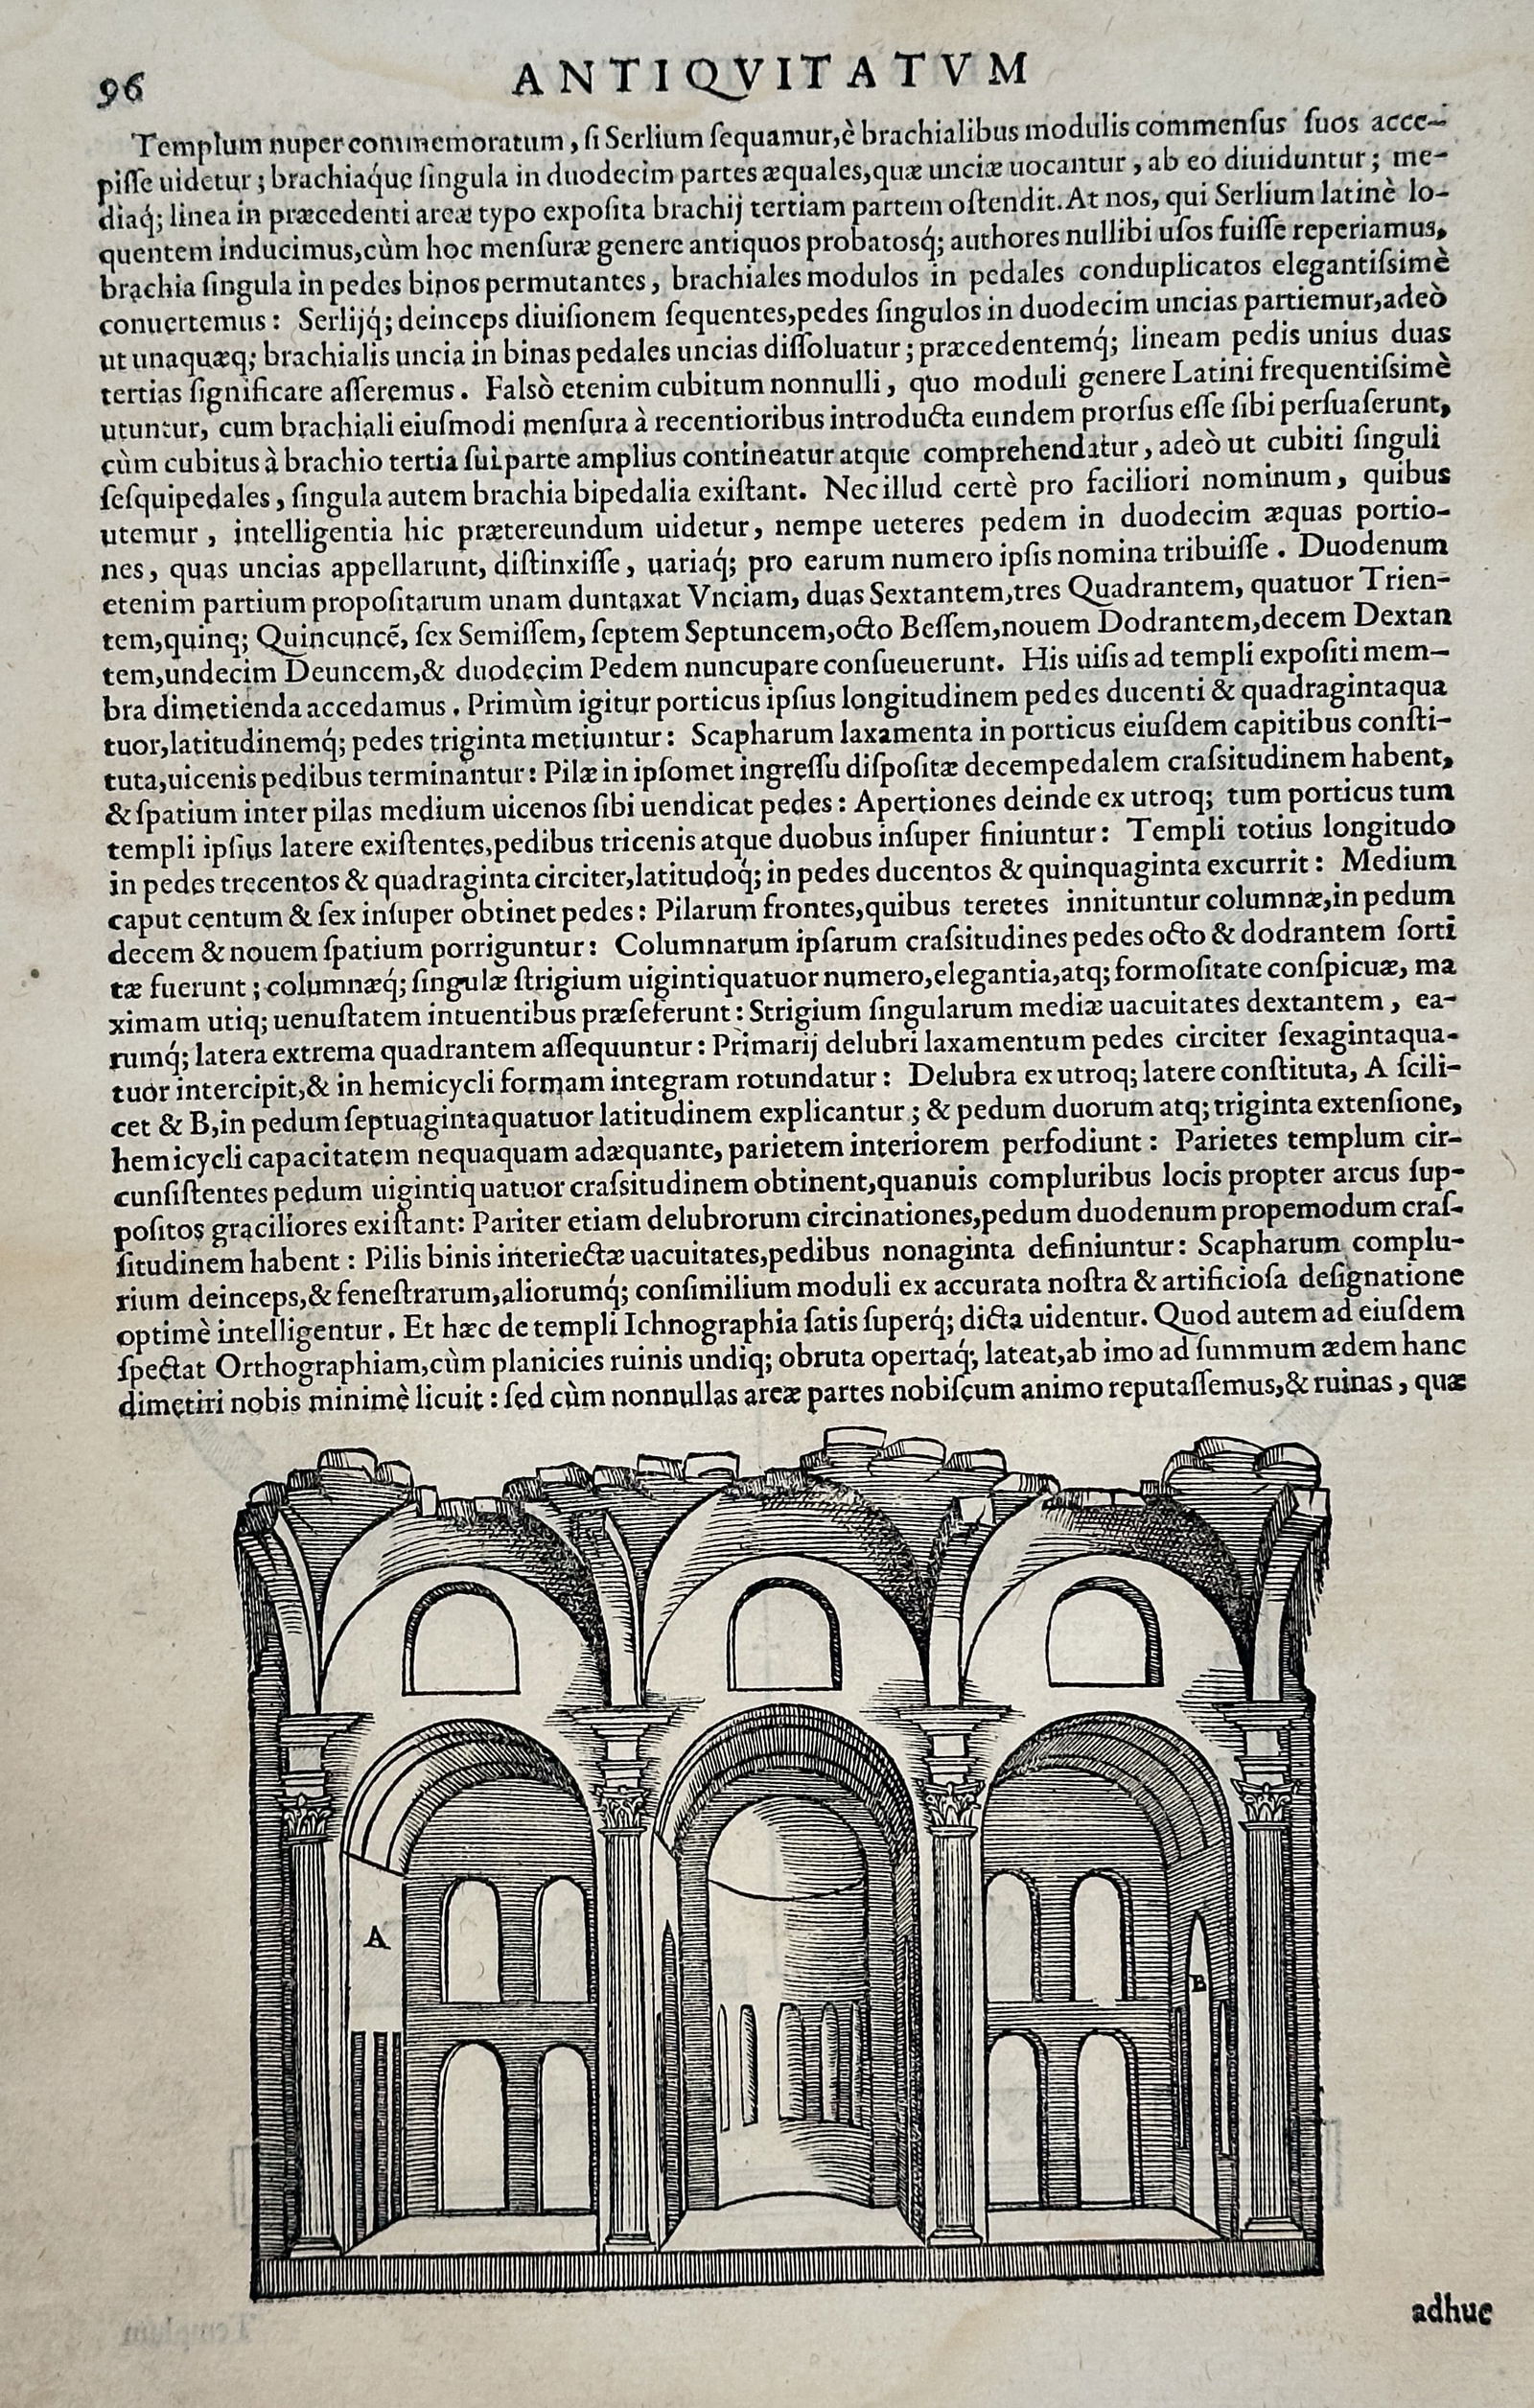 96
ANTIQVITATVM
Templum nuper commemoratum, ſi Serlium ſequamur, è brachialibus modulis commenſus ſuos acce-
piſſe uidetur; brachiaq́ue ſingula in duodecim partes æquales, quæ unciæ uocantur, ab eo diuiduntur; me-
diaq́; linea in præcedenti areæ typo expoſita brachij tertiam partem oſtendit. At nos, qui Serlium latinè lo-
quentem inducimus, cùm hoc menſuræ genere antiquos probatosq́; authores nullibi uſos fuiſſe reperiamus,
brachia ſingula in pedes binos permutantes, brachiales modulos in pedales conduplicatos elegantiſsimè
conuertemus: Serlijq́; deinceps diuiſionem ſequentes, pedes ſingulos in duodecim uncias partiemur, adeò
ut unaquæq; brachialis uncia in binas pedales uncias diſſoluatur; præcedentemq́; lineam pedis unius duas
tertias ſignificare aſſeremus. Falsò etenim cubitum nonnulli, quo moduli genere Latini frequentiſsimè
utuntur, cum brachiali eiuſmodi menſura à recentioribus introducta eundem prorſus eſſe ſibi perſuaſerunt,
cùm cubitus à brachio tertia ſui parte amplius contineatur atque comprehendatur, adeò ut cubiti ſinguli
ſeſquipedales, ſingula autem brachia bipedalia exiſtant. Nec illud certè pro faciliori nominum, quibus
utemur, intelligentia hic prætereundum uidetur, nempe ueteres pedem in duodecim æquas portio-
nes, quas uncias appellarunt, diſtinxiſſe, uariaq́; pro earum numero ipſis nomina tribuiſſe. Duodenum
etenim partium propoſitarum unam duntaxat Vnciam, duas Sextantem, tres Quadrantem, quatuor Trien-
tem, quinq; Quincuncē, ſex Semiſſem, ſeptem Septuncem, octo Beſſem, nouem Dodrantem, decem Dextan
tem, undecim Deuncem, & duodecim Pedem nuncupare conſueuerunt. His uiſis ad templi expoſiti mem-
bra dimetienda accedamus. Primùm igitur porticus ipſius longitudinem pedes ducenti & quadragintaqua
tuor, latitudinemq́; pedes triginta metiuntur: Scapharum laxamenta in porticus eiuſdem capitibus conſti-
tuta, uicenis pedibus terminantur: Pilæ in ipſomet ingreſſu diſpoſitæ decempedalem craſsitudinem habent,
& ſpatium inter pilas medium uicenos ſibi uendicat pedes: Apertiones deinde ex utroq; tum porticus tum
templi ipſius latere exiſtentes, pedibus tricenis atque duobus inſuper finiuntur: Templi totius longitudo
in pedes trecentos & quadraginta circiter, latitudoq́; in pedes ducentos & quinquaginta excurrit: Medium
caput centum & ſex inſuper obtinet pedes: Pilarum frontes, quibus teretes innituntur columnæ, in pedum
decem & nouem ſpatium porriguntur: Columnarum ipſarum craſsitudines pedes octo & dodrantem ſorti
tæ fuerunt; columnæq́; ſingulæ ſtrigium uigintiquatuor numero, elegantia, atq; formoſitate conſpicuæ, ma
ximam utiq; uenuſtatem intuentibus præſeferunt: Strigium ſingularum mediæ uacuitates dextantem, ea-
rumq́; latera extrema quadrantem aſſequuntur: Primarij delubri laxamentum pedes circiter ſexagintaqua-
tuor intercipit, & in hemicycli formam integram rotundatur: Delubra ex utroq; latere conſtituta, A ſcili-
cet & B, in pedum ſeptuagintaquatuor latitudinem explicantur; & pedum duorum atq; triginta extenſione,
hemicycli capacitatem nequaquam adæquante, parietem interiorem perfodiunt: Parietes templum cir-
cunſiſtentes pedum uigintiquatuor craſsitudinem obtinent, quanuis compluribus locis propter arcus ſup-
poſitos graciliores exiſtant: Pariter etiam delubrorum circinationes, pedum duodenum propemodum craſ-
ſitudinem habent: Pilis binis interiectæ uacuitates, pedibus nonaginta definiuntur: Scapharum complu-
rium deinceps, & feneſtrarum, aliorumq́; conſimilium moduli ex accurata noſtra & artificioſa deſignatione
optimè intelligentur. Et hæc de templi Ichnographia ſatis ſuperq́; dicta uidentur. Quod autem ad eiuſdem
ſpectat Orthographiam, cùm planicies ruinis undiq; obruta opertaq́; lateat, ab imo ad ſummum ædem hanc
dimetiri nobis minimè licuit: ſed cùm nonnullas areæ partes nobiſcum animo reputaſſemus, & ruinas, quæ
A
B
adhuc